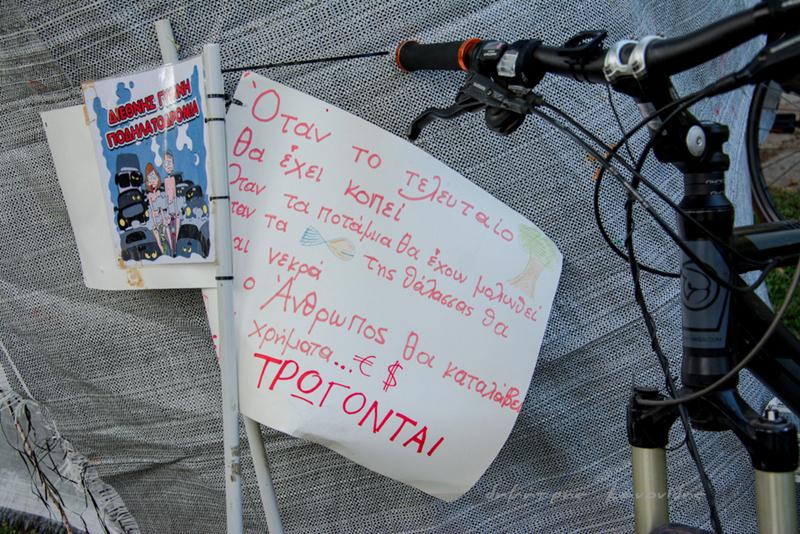 ΔΙΕΘΝΗΣ ΓΥΜΝΗ
ΠΟΔΗΛΑΤΟΔΡΟΜΙΑ
Όταν το τελευταίο
θα έχει κοπεί
Όταν τα ποτάμια θα έχουν μολυνθεί
ταν τα της θάλασσας θα
αι νεκρά
ο Άνθρωπος θα καταλάβει
χρήματα...€ $
ΤΡΩΓΟΝΤΑΙ